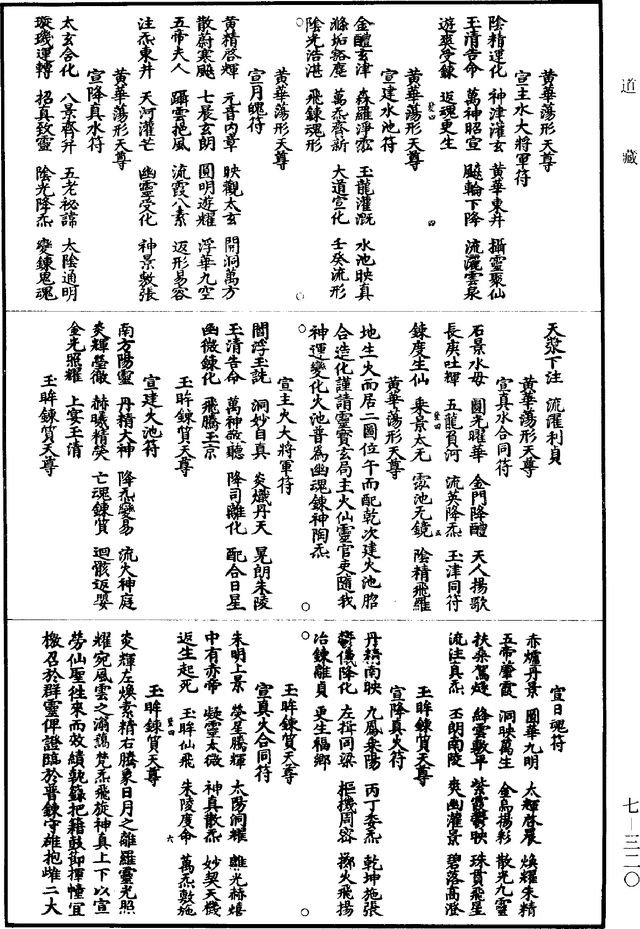 道藏
黃華蕩形天尊
宣主水大將軍符
陰精運化 神津灌玄 黃華東井 攝靈聚仙
玉清告命 萬神昭宣 飈輪下降 流灑雲泉
遊爽受鍊 返魂更生
黃華蕩形天尊
宣建水池符
金醴玄津 森羅淨霐 玉龍灌溉 水池映真
滌垢豁塵 萬炁齊新 大道宣化 壬癸流形
陰光浩湛 飛鍊魂形
黃華蕩形天尊
宣月魄符
黃精啓輝 元音內章 映觀太玄 開洞萬方
散蔚寒飈 七晨玄朗 圓明遊耀 浮華九空
五帝夫人 躡雲挹風 流霞八素 返形易容
注炁東井 天河灌芒 幽靈受化 神景敷張
黃華蕩形天尊
宣降真水符
太玄合化 八景齊升 五老祕諱 太陰通明
璇璣運轉 招真致靈 陰光降炁 變鍊鬼魂
天漿下注 流濯利貞
黃華蕩形天尊
宣真水合同符
石景水母 圓光曜華 金門降醴 天人揚歌
長庚吐輝 五龍負河 流英降炁 玉津同符
鍊度生仙 乘景太无 雲池无鏡 陰精飛羅
黃華蕩形天尊
地生火而居二圓位午而配乾次建火池脗
合造化謹請靈寶玄局主火仙靈官吏隨我
神運變化火池普為幽魂鍊神陶炁
宣主火大將軍符
閻浮玉訛 洞妙自真 炎熾丹天 晃朗朱陵
玉清告命 萬神敬聽 降司離化 配合日星
幽微鍊化 飛騰玉京
玉眸鍊質天尊
宣建火池符
南方陽靈 丹精大神 降炁變易 流火神庭
炎輝瑩徹 赫曦精熒 亡魂鍊質 迴骸返嬰
金光照耀 上宴玉清
玉眸鍊質天尊
宣日魂符
赤爐丹景 圓華九明 太輝啓晨 煥耀朱精
五帝蕚霞 洞映萬生 金烏揚彩 散光九靈
扶桑駕煙 絳雲敷平 紫霞鬱映 珠貫飛星
流注真炁 丕朗南陵 爽幽灌景 碧落高澄
玉眸鍊質天尊
宣降真火符
丹精南映 九鳳乘陽 丙丁委炁 乾坤施張
鬱儀降化 左掛同梁 樞機周密 擲火飛揚
冶鍊離貞 更生福鄉
玉眸鍊質天尊
宣真火合同符
朱明上景 熒星騰輝 太陽洞耀 離光赫熺
中有赤帝 凝靈太微 神真散炁 妙契天機
返生起死 玉眸仙飛 朱陵度命 萬炁敷施
玉眸鍊質天尊
炎輝左煥素精右騰象日月之離羅靈光照
耀宛風雲之滃靄梵炁飛旋神真上下以宣
勞仙聖往來而效績執籙把籍鼓仰揮幢宜
檄召於群靈俾證臨於普鍊守雄抱雌二大
七—三二〇